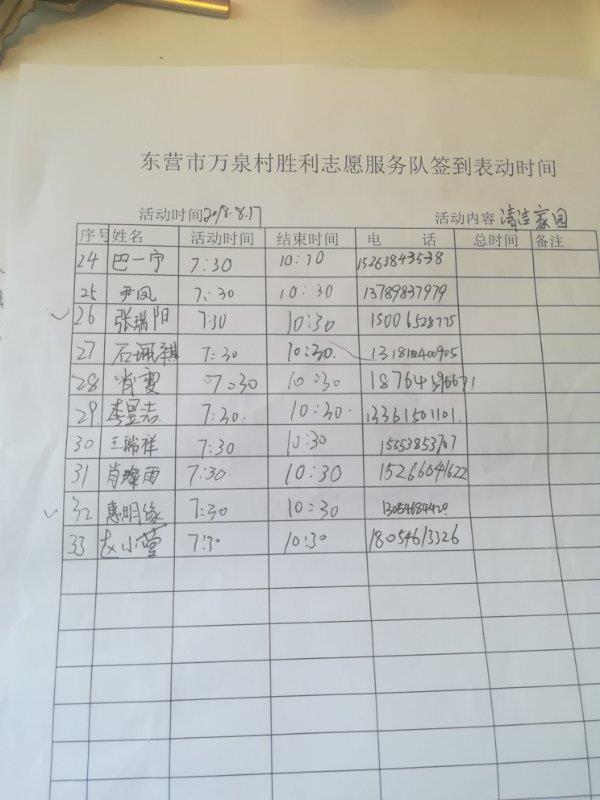 东营市万泉村胜利志愿服务队签到表动时间
活动时间2018.8.17 活动内容 清洁家园
序号 姓名 活动时间 结束时间 电 话 总时间 备注
24 巴一宁 7:30 10:30 15263843538
25 尹凤 7:30 10:30 13789837979
26 张瑞阳 7:30 10:30 15006528775
27 石珮祺 7:30 10:30. 131818400905
28 肖雯 7:30 10:30 18764
29. 李昱志 7:30. 10:30. 13361501101.
30 王瑞祥 7:30 10:30 15553853707
31 肖雨 7:30 10:30 15266041622
32 惠明缘 7:30 10:30 13054684420
33 赵小萱 7:30 10:30 18054613326